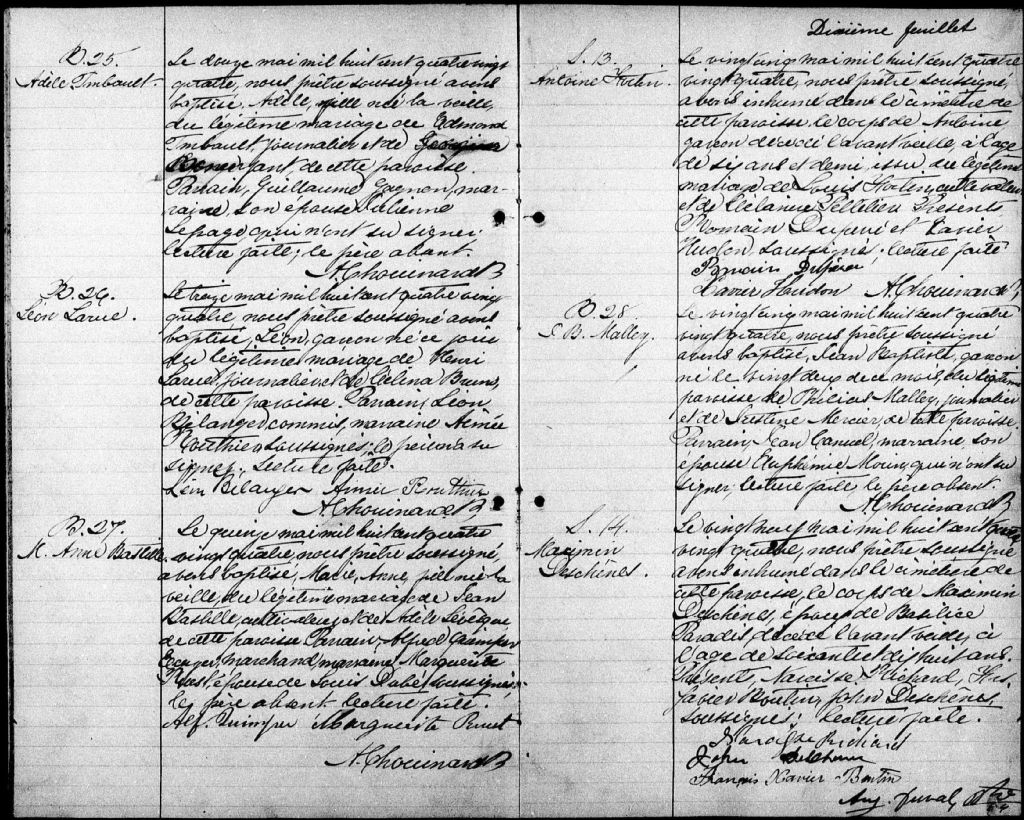 B. 25.
Adèle Imbault.
Le douze mai mil huit cent quatre vingt
quatre, nous prêtre soussigné avons
baptisé Adèle, fille née la veille
du légitime mariage de Edmond
Imbault journalier et de Georgina
de cette paroisse.
Parrain, Guillaume Gagnon, mar-
raine, son épouse Julienne
Lepage qui n'ont su signer.
Lecture faite; le père absent.
A. Chouinard P
B. 26.
Léon Larue.
Le treize mai mil huit cent quatre vingt
quatre nous prêtre soussigné avons
baptisé, Léon, garçon né ce jour
du légitime mariage de Henri
Larue, journalier et de Célina Brown
de cette paroisse. Parrain, Léon
Bélanger commis, marraine Aimée
Routhier soussignés; le père n'a su
signer. Lecture faite.
Léon Bélanger Aimée Routhier
A. Chouinard P
B. 27.
M. Anne Bastille.
Le quinze mai mil huit cent quatre
vingt quatre, nous prêtre soussigné
avons baptisé, Marie, Anne, fille née la
veille du légitime mariage de Jean
Bastille, cultivateur et de Adèle Lévèsque
de cette paroisse Parrain, Alfred
marchand, marraine, Marguerite
épouse de Louis Dubé, soussignés
le père absent. Lecture faite.
Alf. Marguerite
A. Chouinard P
Dixième feuillet
S. 13.
Antoine Fortin.
Le vingt cinq mai mil huit cent quatre
vingt quatre, nous prêtre soussigné,
avons inhumé dans le cimetière de
cette paroisse le corps de Antoine
garçon décédé l'avant veille, à l'age
de six ans et demi, issu du légitime
mariage de Louis Fortin, cultivateur
et de Mélanie Pelletier Présents
Romain Duperé et Xavier
Hudon, soussignés; lecture faite
Romain Duperé
Xavier Hudon A. Chouinard P
B. 28.
J. B. Malley.
Le vingt cinq mai mil huit cent quatre
vingt quatre, nous prêtre soussigné
avons baptisé, Jean Baptiste, garçon
né le vingt deux de ce mois, du légitime
paroisse de Philias Malley, journalier
et de Justine Mercier, de cette paroisse.
Parrain, Jean Canuel, marraine son
épouse Euphémie Moury qui n'ont su
signer, lecture faite, le père absent.
A. Chouinard P
S. 14.
Maximin
Deschênes.
Le vingt neuf mai mil huit cent quatre
vingt, quatre, nous prêtre soussigné
avons inhumé dans le cimetière de
cette paroisse, le corps de Maximin
Deschênes, époux de Basilice
Paradis, décédé l'avant veille, à
l'age de soixante et dix huit ans.
Présents, Narcisse Richard, Frs.
Xavier Boutin, John Deschênes,
soussignés; lecture faite.
Narcisse Richard
John Deschenes
François Xavier Boutin
Aug. Duval Ptre